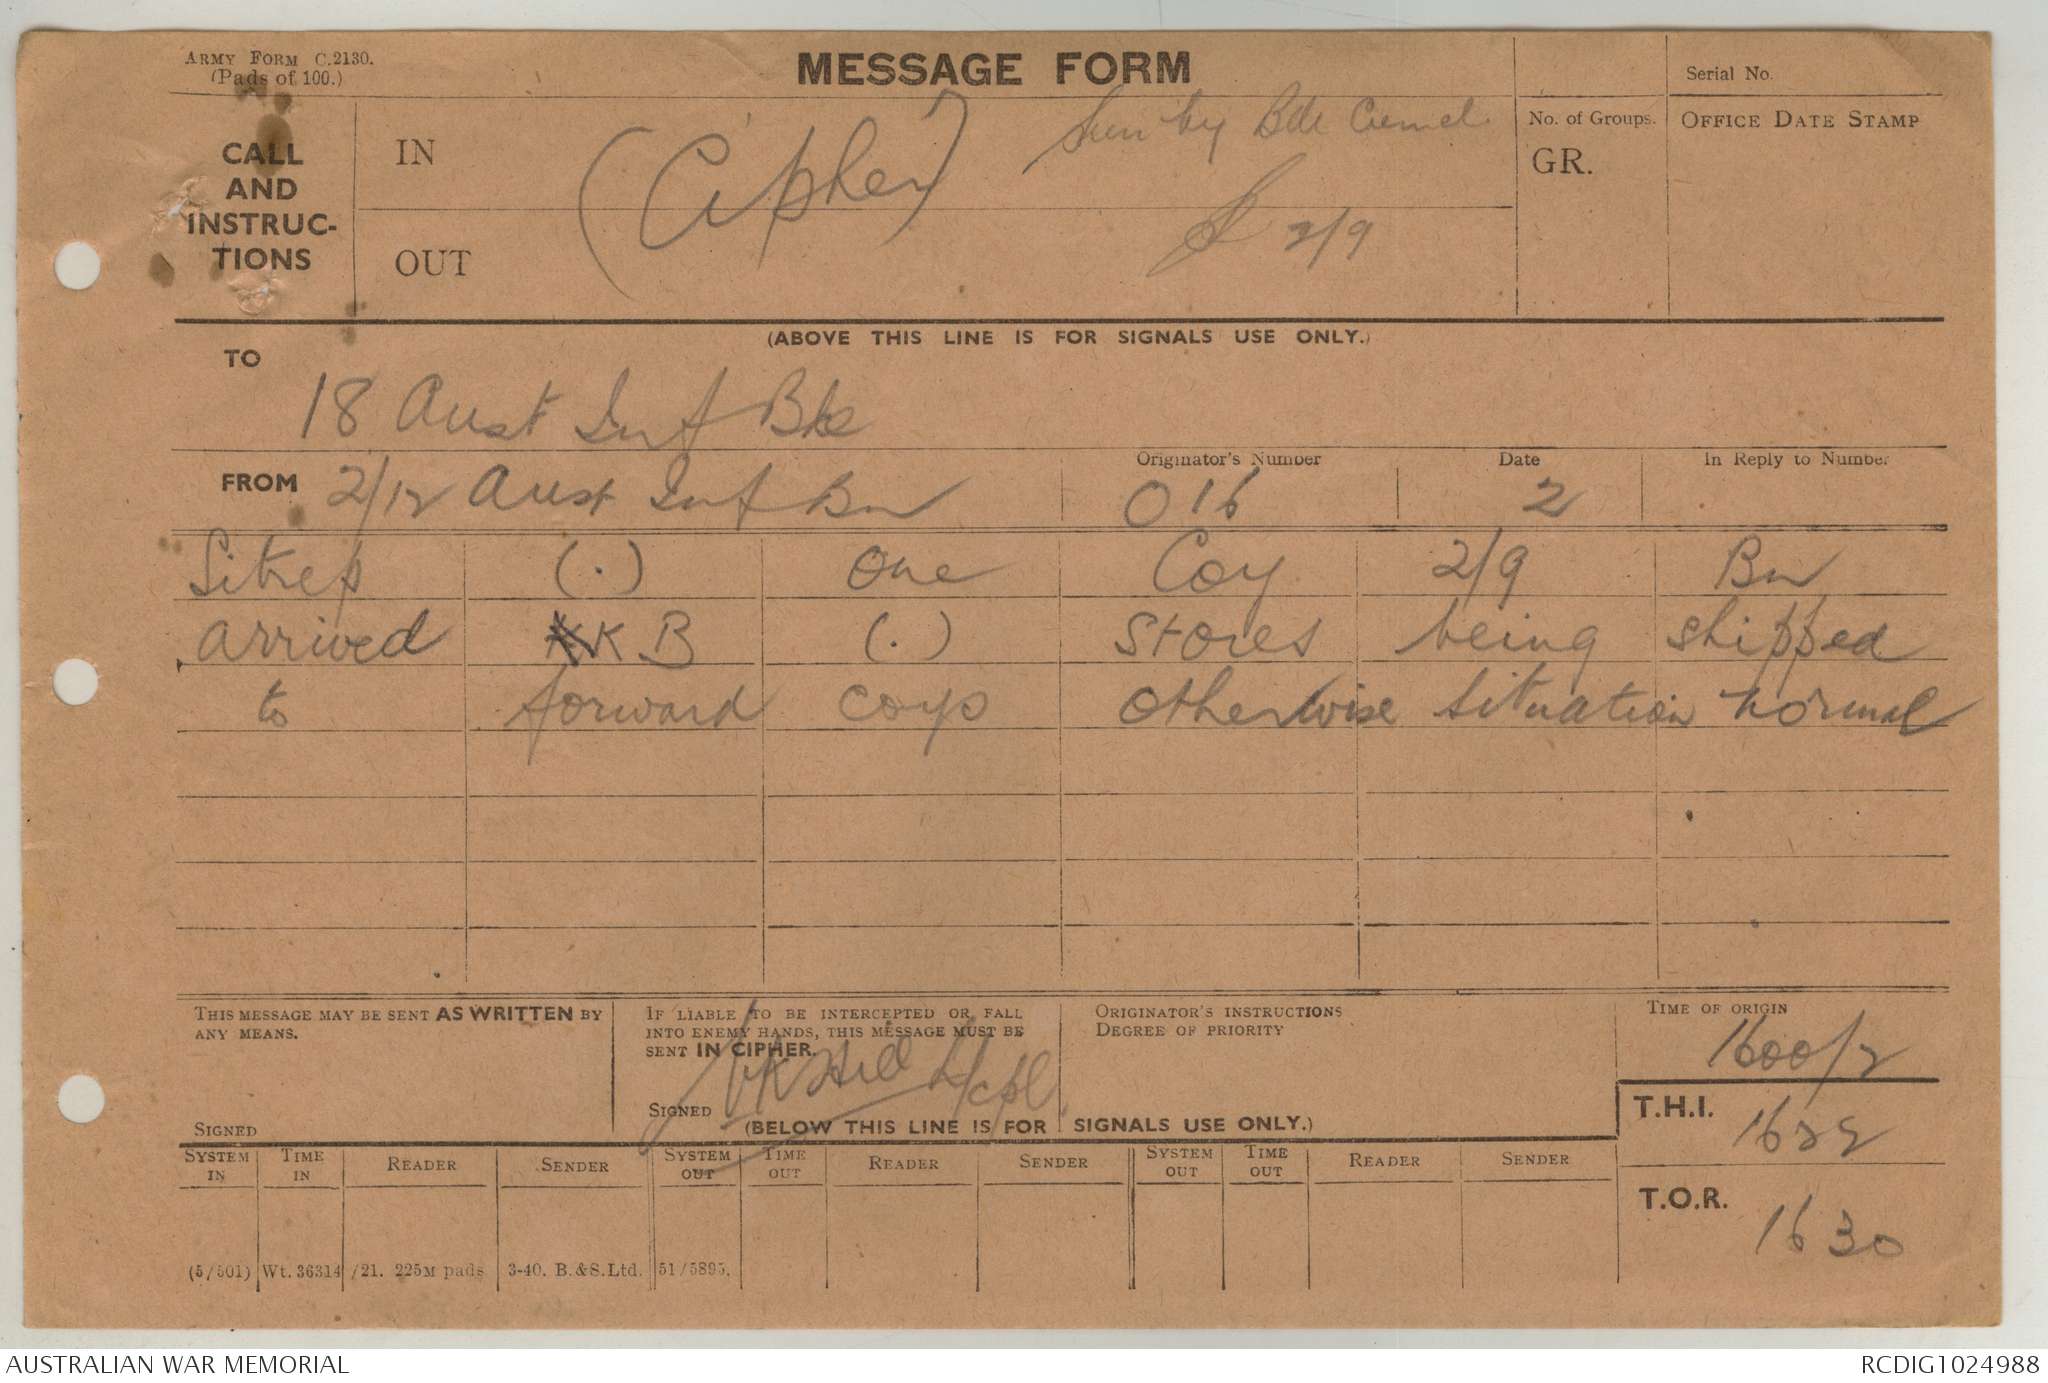 ARMY FORM C.2130.
(Pads of 100.)
MESSAGE FORM
Serial No.
CALL AND INSTRUC-TIONS
IN
(Cipher)
Seen by Bde Comd.
2/9
OUT
No. of Groups.
GR.
OFFICE DATE STAMP
(ABOVE THIS LINE IS FOR SIGNALS USE ONLY.)
TO
18 Aust Inf Bde
FROM 2/12 Aust Inf Bn
Originator's Number
016
Date
2
In Reply to Number
Sitrep (.) One Coy 2/9 Bn
arrived KB (.) Stores being shipped
to forward coys otherwise situation normal
THIS MESSAGE MAY BE SENT AS WRITTEN BY ANY MEANS.
SIGNED
IF LIABLE TO BE INTERCEPTED OR FALL INTO ENEMY HANDS, THIS MESSAGE MUST BE SENT IN CIPHER.
SIGNED
Hill L/cpl.
ORIGINATOR'S INSTRUCTIONS
DEGREE OF PRIORITY
TIME OF ORIGIN
1600/2
(BELOW THIS LINE IS FOR SIGNALS USE ONLY.)
T.H.I.
1629
T.O.R.
1630
SYSTEM IN TIME IN READER SENDER SYSTEM OUT TIME OUT READER SENDER SYSTEM OUT TIME OUT READER SENDER
(5/501) Wt. 36314/21. 225M pads 3-40. B.&S.Ltd. 51/5895.
AUSTRALIAN WAR MEMORIAL
RCDIG1024988